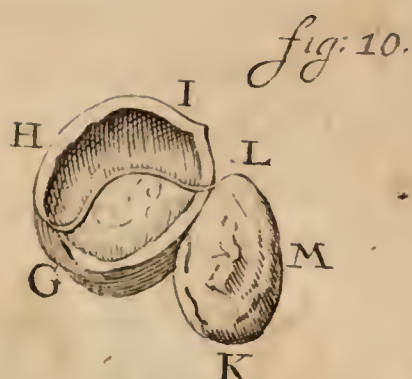 fig: 10.
I
H
L
G
M
K